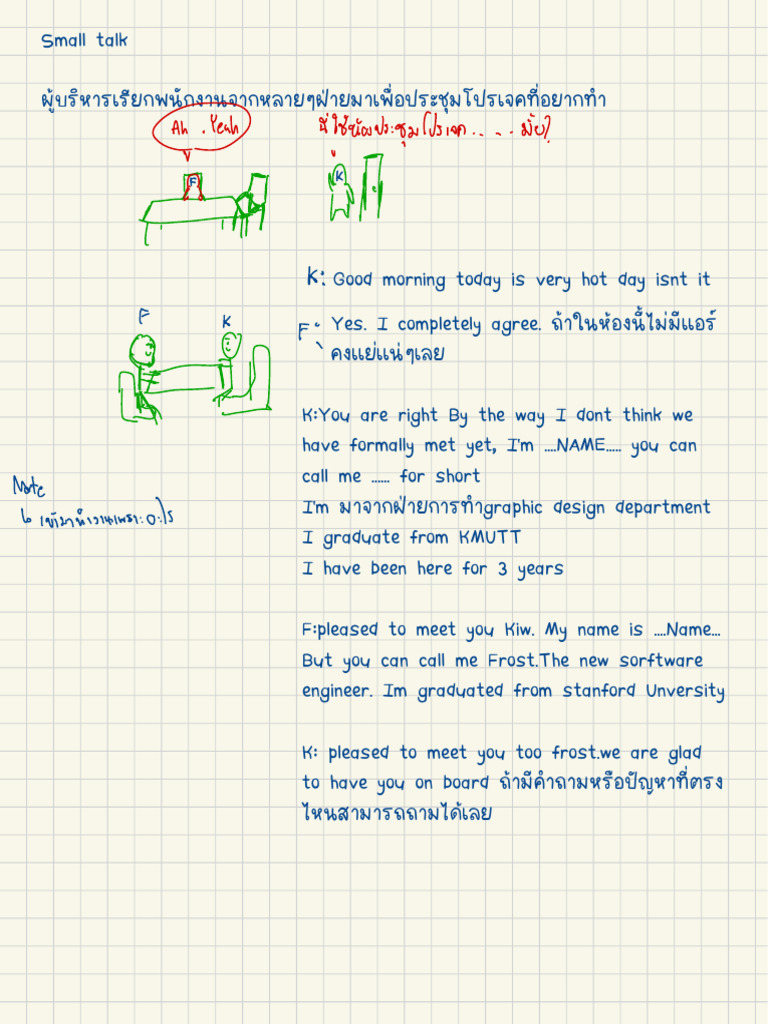 Small talk
ผู้บริหารเรียกพนักงานจากหลายๆฝ่ายมาเพื่อประชุมโปรเจคที่อยากทำ
Ah . Yeah
นี่ใช่ห้องประชุมโปรเจค . . . . มั้ย?
F
K
K: Good morning today is very hot day isnt it
F
K
F: Yes. I completely agree. ถ้าในห้องนี้ไม่มีแอร์
คงแย่แน่ๆเลย
K:You are right By the way I dont think we
have formally met yet, I'm ....NAME..... you can
call me ...... for short
I'm มาจากฝ่ายการทำgraphic design department
I graduate from KMUTT
I have been here for 3 years
Note
เข้ามาทำงานเพราะอะไร
F:pleased to meet you Kiw. My name is ....Name...
But you can call me Frost.The new sorftware
engineer. Im graduated from stanford Unversity
K: pleased to meet you too frost.we are glad
to have you on board ถ้ามีคำถามหรือปัญหาที่ตรง
ไหนสามารถถามได้เลย